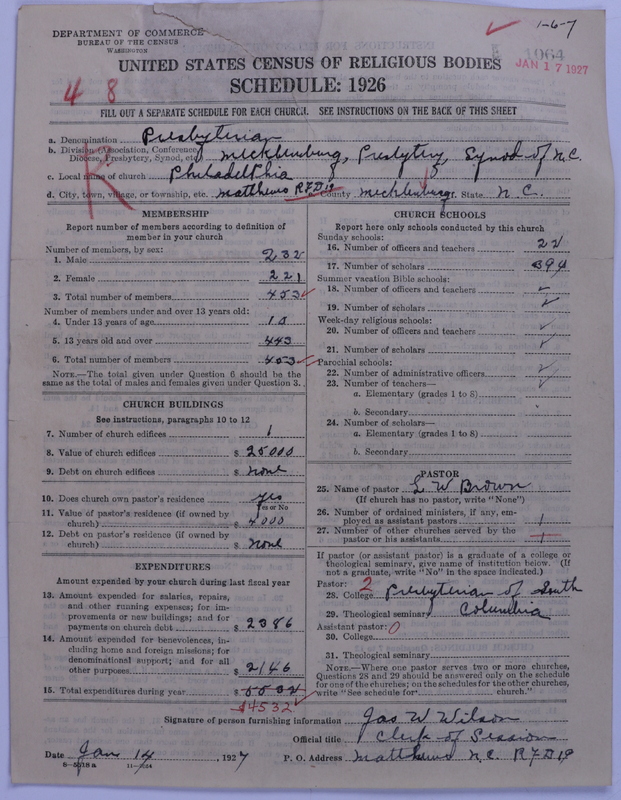 1-6-7
DEPARTMENT OF COMMERCE
BUREAU OF THE CENSUS
WASHINGTON
1064
JAN 17 1927
UNITED STATES CENSUS OF RELIGIOUS BODIES
SCHEDULE: 1926
4 8
FILL OUT A SEPARATE SCHEDULE FOR EACH CHURCH. SEE INSTRUCTIONS ON THE BACK OF THIS SHEET
a. Denomination Presbyterian
b. Division (Association, Conference, Diocese, Presbytery, Synod, etc.) Mecklenburg, Presbytery, Synod of N.C.
c. Local name of church Philadelphia
d. City, town, village, or township, etc. Matthews RFD 19 e. County Mecklenburg f. State N C.
R
MEMBERSHIP
Report number of members according to definition of
member in your church
Number of members, by sex:
1. Male 232
2. Female 221
3. Total number of members 453
Number of members under and over 13 years old:
4. Under 13 years of age 10
5. 13 years old and over 443
6. Total number of members 453
NOTE.—The total given under Question 6 should be
same as the total of males and females given under Question 3.
CHURCH BUILDINGS
See instructions, paragraphs 10 to 12
7. Number of church edifices 1
8. Value of church edifices $ 25000
9. Debt on church edifices $ None
10. Does church own pastor's residence yes
Yes or No
11. Value of pastor's residence (if owned by
church) $ 4000
12. Debt on pastor's residence (if owned by
church) $ None
EXPENDITURES
Amount expended by your church during last fiscal year
13. Amount expended for salaries, repairs,
and other running expenses; for im-
provements or new buildings; and for
payments on church debt $ 2386
14. Amount expended for benevolences, in-
cluding home and foreign missions; for
denominational support; and for all
other purposes $ 2146
15. Total expenditures during year $ 5532
$4532
CHURCH SCHOOLS
Report here only schools conducted by this church
Sunday schools:
16. Number of officers and teachers 22
17. Number of scholars 394
Summer vacation Bible schools:
18. Number of officers and teachers
19. Number of scholars
Week-day religious schools:
20. Number of officers and teachers
21. Number of scholars
Parochial schools:
22. Number of administrative officers
23. Number of teachers—
a. Elementary (grades 1 to 8)
b. Secondary
24. Number of scholars—
a. Elementary (grades 1 to 8)
b. Secondary
PASTOR
25. Name of pastor L W Brown
(If church has no pastor, write "None")
26. Number of ordained ministers, if any, em-
ployed as assistant pastors 1
27. Number of other churches served by the
pastor or his assistants 1
If pastor (or assistant pastor) is a graduate of a college or
theological seminary, give name of institution below. (If
not a graduate, write "No" in the space indicated.)
Pastor: 2
28. College Presbyterian of South
29. Theological seminary Columbia
Assistant pastor: 0
30. College
31. Theological seminary
NOTE.—Where one pastor serves two or more churches,
Questions 28 and 29 should be answered only on the schedule
for one of the churches; on the schedules for the other churches,
write "See schedule for church."
Signature of person furnishing information Jas W Wilson
Official title Clerk of Session
Date Jan 14, 1927 P. O. Address Matthews N.C. RFD 19